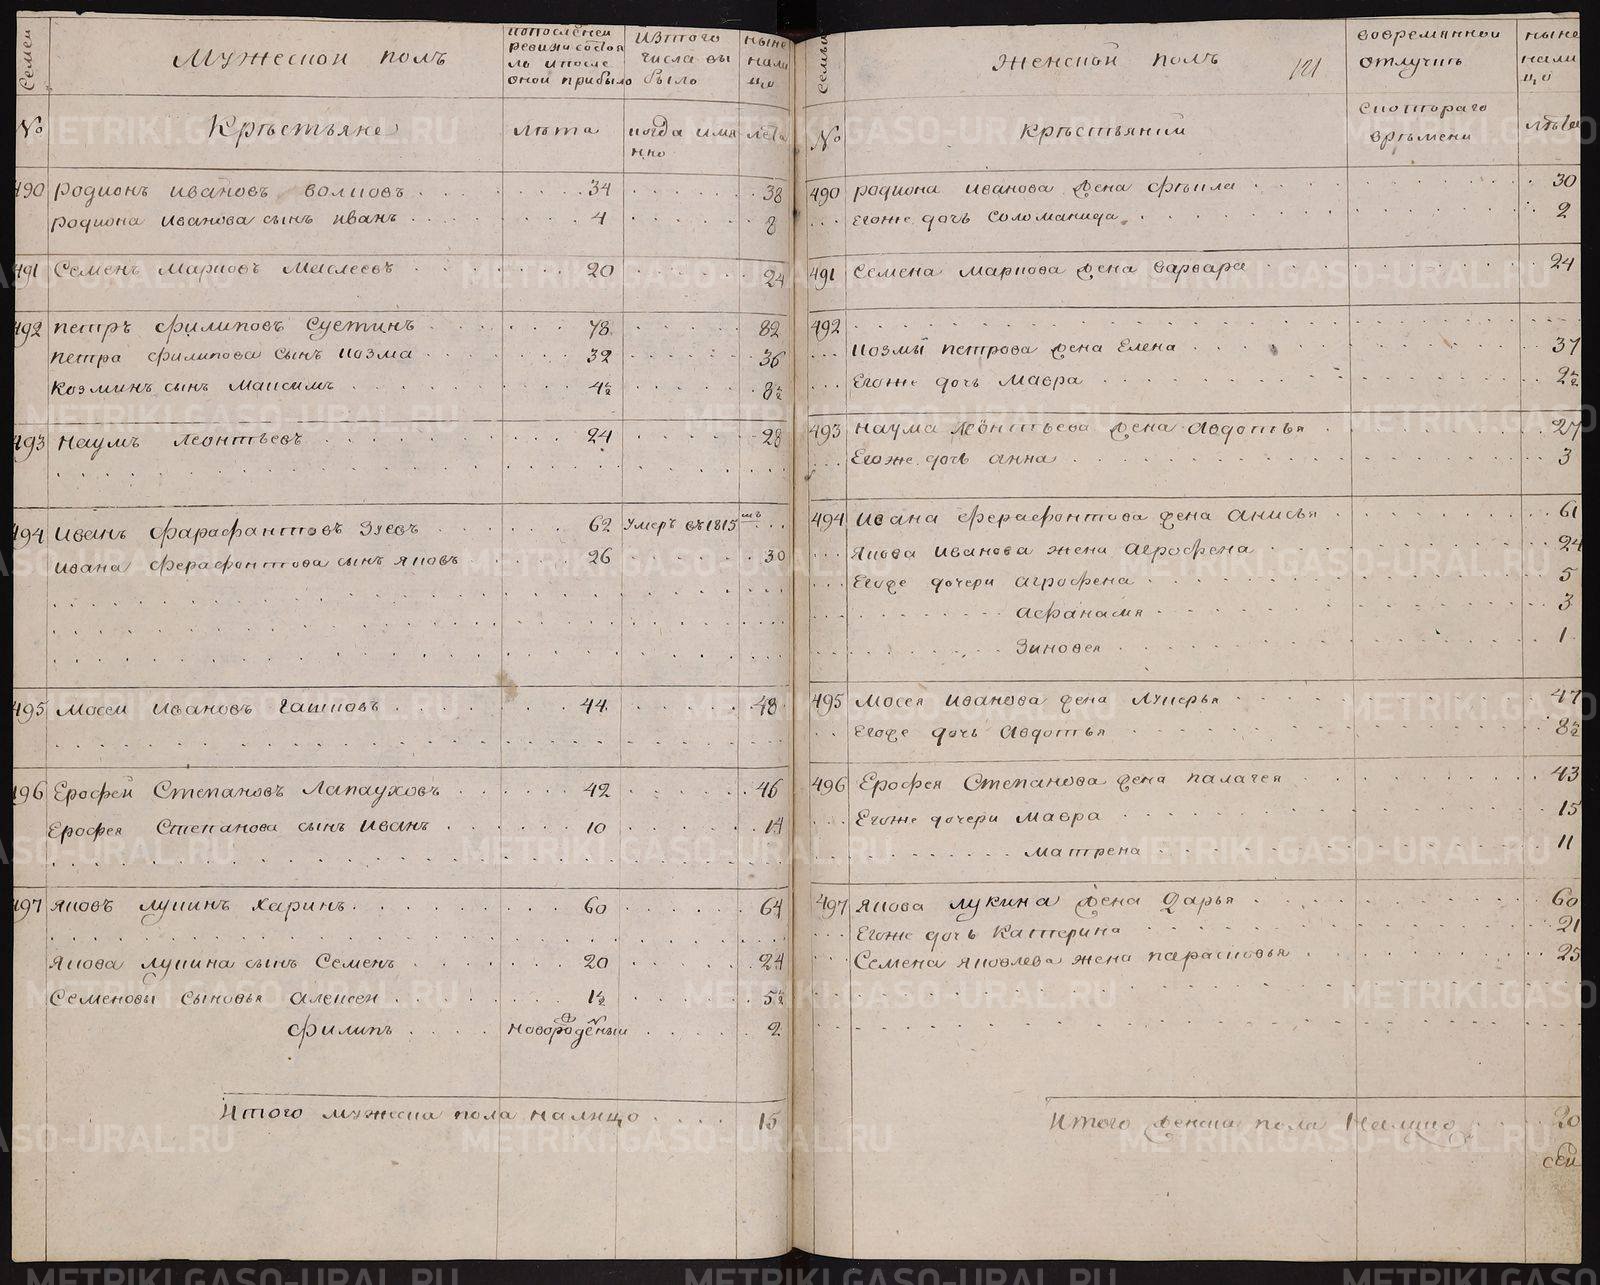 Семеи
Мужескои полъ
попоследнеи ревизи состояль ипосле онои прибыло
Изтого числа выбыло
ныне налицо
№
Крѣстьяне
лѣта
когда имянно
лета
490 родионъ ивановъ волковъ 34 38
родиона иванова сынъ иванъ 4 8
491 Семенъ Марковъ 20 24
492 петръ филиповъ Суетинъ 78 82
петра филипова сынъ козма 32 36
козминъ сынъ Максимъ 4½ 8½
493 наумъ леонтьевъ 24 28
494 иванъ фарафантовъ Зуевъ 62 умеръ въ 1815мъ
ивана ферафонтова сынъ яковъ 26 30
495 Мосеи ивановъ гашковъ 44 48
496 Ерофеи Степановъ Лапауховъ 42 46
Ерофея Степанова сынъ иванъ 10 14
497 яковъ лукинъ харинъ 60 64
якова лукина сынъ Семенъ 20 24
Семеновы сыновья алексеи 1½ 5½
филипъ новорожденыи 2
Итого мужеска пола налицо 15
Семьи
Женскои полъ
121
вовремяннои отлучкѣ
ныне налицо
№
крѣстьянки
Скотораго врѣмени
лѣта
490 родиона иванова жена фѣкла 30
Егоже дочь Соломанида 2
491 Семена маркова жена варвара 24
492
козмы петрова жена Елена 37
Егоже дочь мавра 2½
493 наума леонтьева жена авдотья 27
Егоже дочь анна 3
494 ивана ферафонтова жена анисья 61
якова иванова жена агрофена 24
Егоже дочери агрофена 5
афанасия 3
Зиновея 1
495 мосея иванова жена лукерья 47
Егоже дочь авдотья 8½
496 Ерофея Степанова жена палагея 43
Егоже дочери мавра 15
матрена 11
497 якова лукина жена дарья 60
Егоже дочь катерина 21
Семена яковлева жена парасковья 25
Итого женска пола налицо 20
METRIKI.GASO-URAL.RU